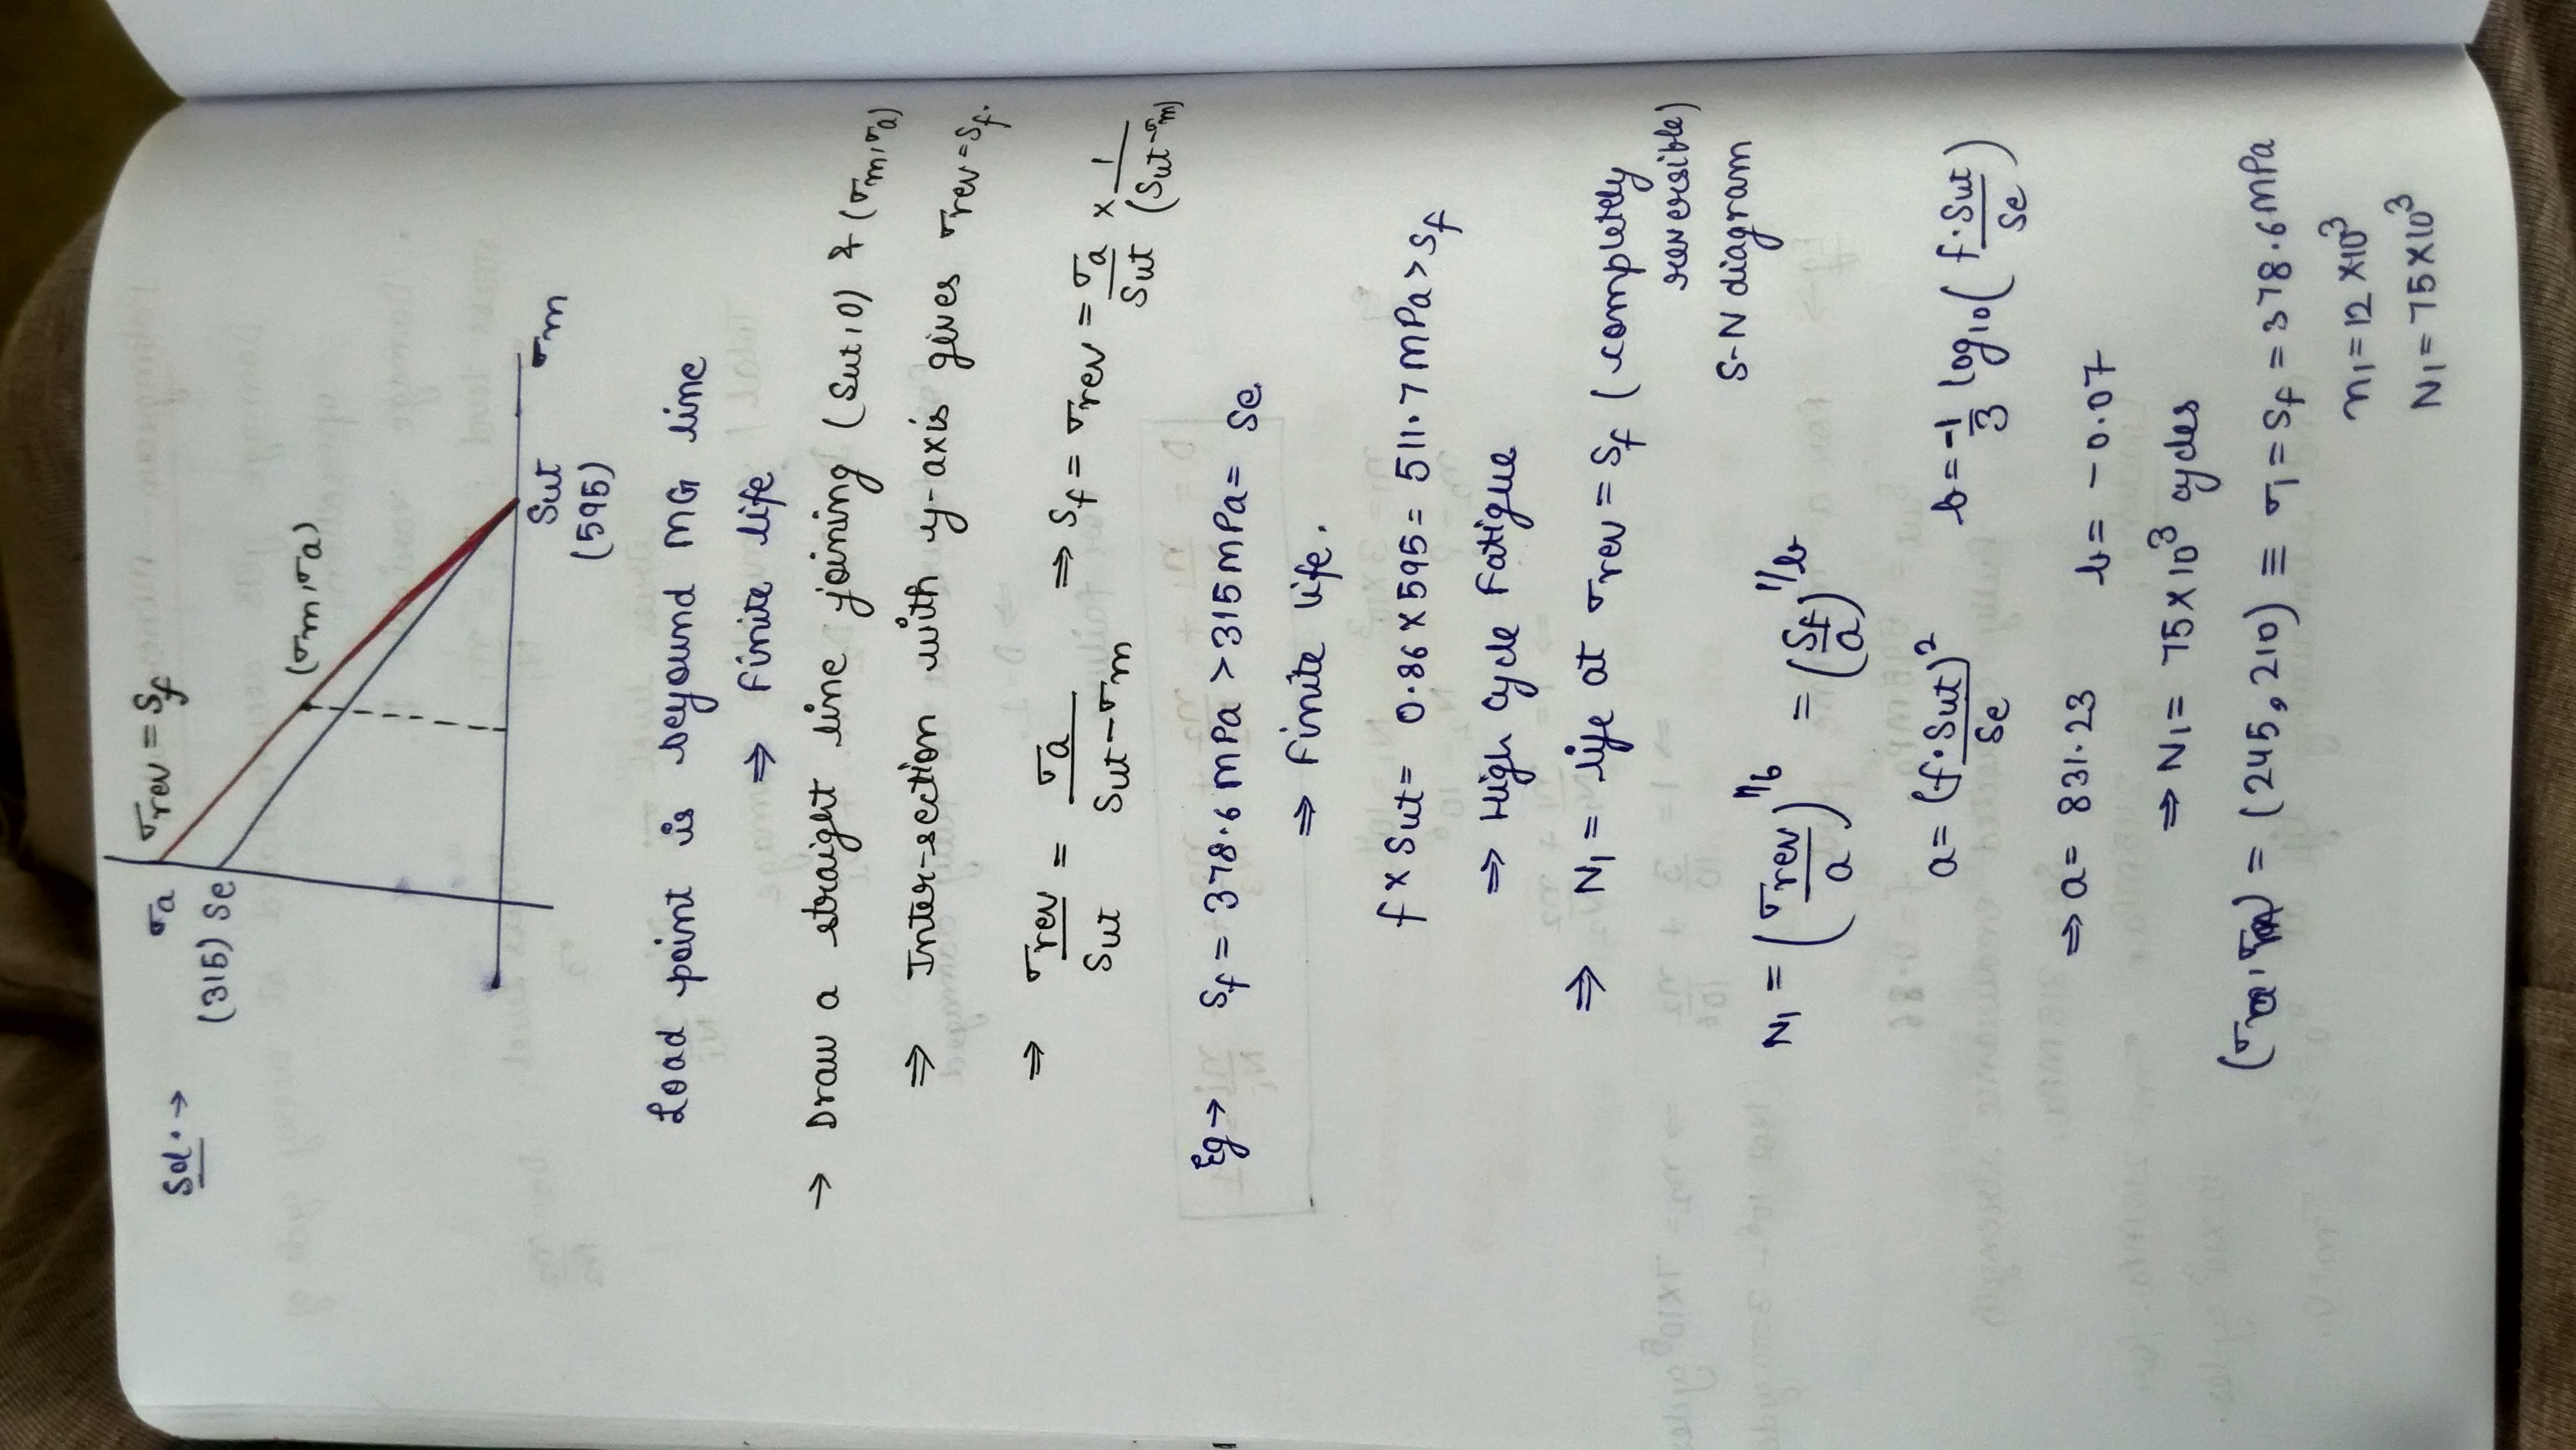 Sol. →
σa
σrev = Sf
(315) Se
(σm, σa)
Sut
σm
(595)
Load point is beyound MG line
⇒ Finite life
→ Draw a straight line joining (Sut, 0) & (σm, σa)
⇒ Inter-section with y-axis gives σrev = Sf.
⇒ σrev/Sut = σa/(Sut-σm) ⇒ Sf = σrev = σa/Sut × 1/(Sut-σm)
Eg → Sf = 378.6 MPa > 315 MPa = Se
⇒ Finite life.
f × Sut = 0.86 × 595 = 511.7 MPa > Sf
⇒ High Cycle Fatigue
⇒ N1 = life at σrev = Sf (completely
reversible)
S-N diagram
N1 = (σrev/a)^1/b = (Sf/a)^1/b
a = (f.Sut)²/Se b = -1/3 log10(f.Sut/Se)
⇒ a = 831.23 b = -0.07
⇒ N1 = 75 × 10³ cycles
= (245, 210) ≡ σ1 = Sf = 378.6 MPa
n1 = 12 × 10³
N1 = 75 × 10³